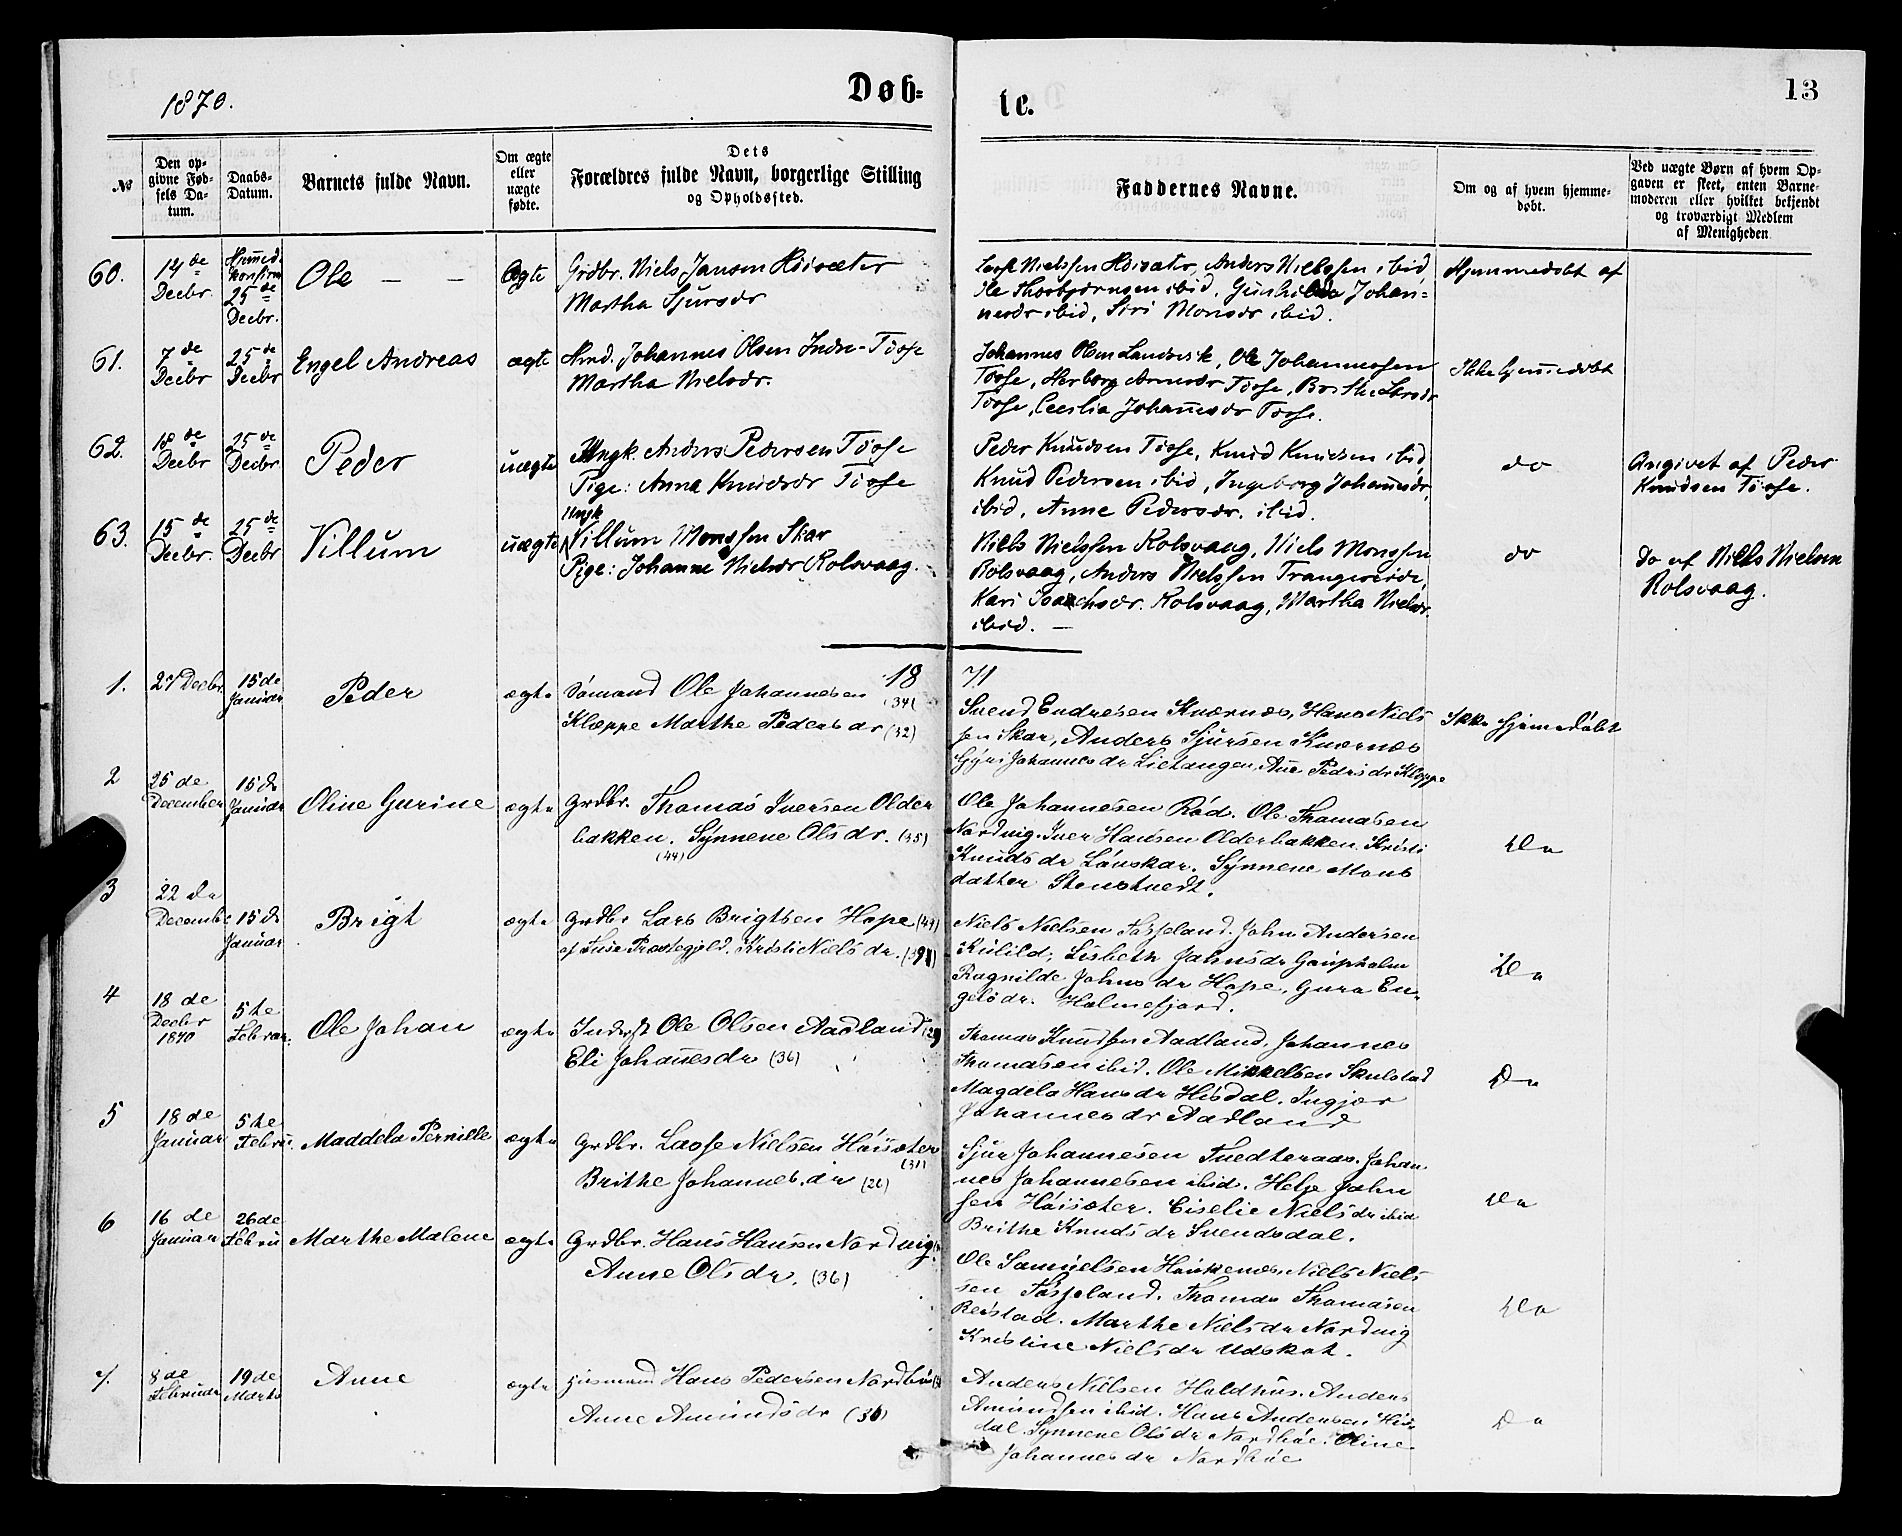 1870.
Døb-
te.
13
№
Den op-
givne Fød-
sels Da-
tum.
Daabs-
Datum.
Barnets fulde Navn.
Om ægte
eller
uægte
fødte.
Dets
Forældres fulde Navn, borgerlige Stilling
og Opholdssted.
Faddernes Navne.
Om og af hvem hjemme-
døbt.
Ved uægte Børn af hvem Op-
gaven er skeet, enten Barne-
moderen eller hvilket bekjendt
og troværdigt Medlem
af Menigheden
60.
14 de
Decbr.
25 de
Decbr.
Ole
Ægte
Grdbr. Niels Jansen Höisæter
Martha Sjursdr
Nielssen Höisæter, Anders Nielssen ibid
Ole Thorbjørnsen ibid, Gunhilda Johan-
nesdr ibid, Siri Monsdr ibid.
Hjemmedøbt af
61.
7 de
Decbr
25 de
Decbr
Engel Andreas
ægte
Hmd. Johannes Olsen Indre-Tösse
Martha Nielsdr.
Johannes Olsen Landvik, Ole Johannessen
Tösse, Herborg Arnesdr Tösse, Borthe Larsdr
Tösse, Cecilia Johañesdr Tösse.
Ikke hjem̃edöbt
62.
18 de
Decbr
25 de
Decbr.
Peder
uægte
Ungk. Anders Pedersen Tösse
Pige: Anna Knudsdr Tösse
Peder Knudsen Tösse, Knud Knudsen ibid
Knud Pedersen ibid, Ingeborg Johañesdr.
ibid, Anne Pedersdr. ibid.
do
Angivet af Peder
Knudsen Tösse.
63.
15 de
Decbr.
25 de
Decbr
Villum
uægte
Ungk
Villum Monssen Skar
Pige: Johanne Nielsdr Rolsvaag.
Niels Nielssen Rolsvaag, Niels Monssen
Rolsvaag, Anders Nielssen Trangereide,
Kari Isachsdr. Rolsvaag, Martha Nielsdr.
ibid.
do
Do af Niels Nielsen
Rolsvaag.
18
71
1.
27 Decbr.
15 de
Januar
Peder
ægte
Ole Johannesen
(34)
Kleppe Marthe Pedersdr (32)
Svend Endresen Kværnes, Hans Niels
sen Skar, Anders Sjursen Kværnes
Johannesdr Lietangen, Añe Pedersdr Kleppe
Ikke hjemedøbt
2
25 de
December
15 de
Januar
Oline Gurine
ægte
Grdbr. Thomas Iversen Older
bakken. Synnene Olsdr. (35)
(44)
Ole Johannesen Röd. Ole Thomasen
Nordvig. Iver Hansen Olderbakken. Kristi
Knudsdr Lönskar. Synnene Mons
datter Stenstvedt.
Do
3
22 de
December
15 de
Januar
Brigt
ægte
Grdbr Lars Brigtsen Hope (49)
af Fuse Præstegjeld. Kristi Nielsdr.
Niels Nielsen Tösseland. John Andersen
Kulild, Lisbeth Johnsdr Gaupholm
Ragnilde Johnsdr Hope, Gura En-
gelsdr. Holmefjord.
Do
4
18 de
Decbr
1870
5te
Februar:
Ole Johan
ægte
Inderst Ole Olsen Aadland
Eli Johañesdr (36)
Thomas Knudsen Aadland, Johannes
Thomasen ibid. Ole Mikkelsen Skulstad
Magdela Hansdr Hisdal. Ingjer
Johannesdr Aadland
Do
5
18 de
Januar
5te
Februar.
Maddela Pernille
ægte
Grdbr. Lasse Nielsen Höisæter
(31)
Brithe Johannesdr (26)
Sjur Johannesen Tvedteraas. Johan
nes Johannesen ibid. Helje John
sen Höisæter. Ciselie Nielsdr ibid
Brithe Knudsdr Svendsdal.
Do
6
16 de
Januar
26 de
Febru
Marthe Malene
ægte
Grdbr. Hans Hansen Nordvig
Anne Olsdr. (36)
Ole Samuelsen Haukenes, Niels Niels
sen Tösseland. Thomas Thomasen
Reistad. Marthe Nielsdr Nordvig
Kristine Nielsdr Udskot.
Do
7.
8 de
Februar
19 de
Marts
Anne
ægte
Husmand Hans Pedersen Nordhus
Anne Amundsdr (36)
Anders Nielsen Holdhus. Anders
Amundsen ibid. Hans Andersen His-
dal. Synnene Olsdr Nordhus. Oline
Johannesdr Nordhus
Do